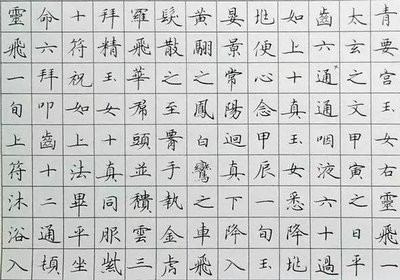 青要宮玉女右靈飛一
太玄之文甲寅之日平
齒六通通咽液六十過
如上十真玉女悉降兆
兆便心念甲辰一旬玉
晏景常陽迴真下降入
黃翮之鳳白鸞之車飛
髮散之至腰手執金虎
羅飛華帬頭並穨雲三
拜精玉女十真同服紫
十符祝如上法畢平坐
命六拜叩齒十二通頓
靈飛一旬上符沐浴入